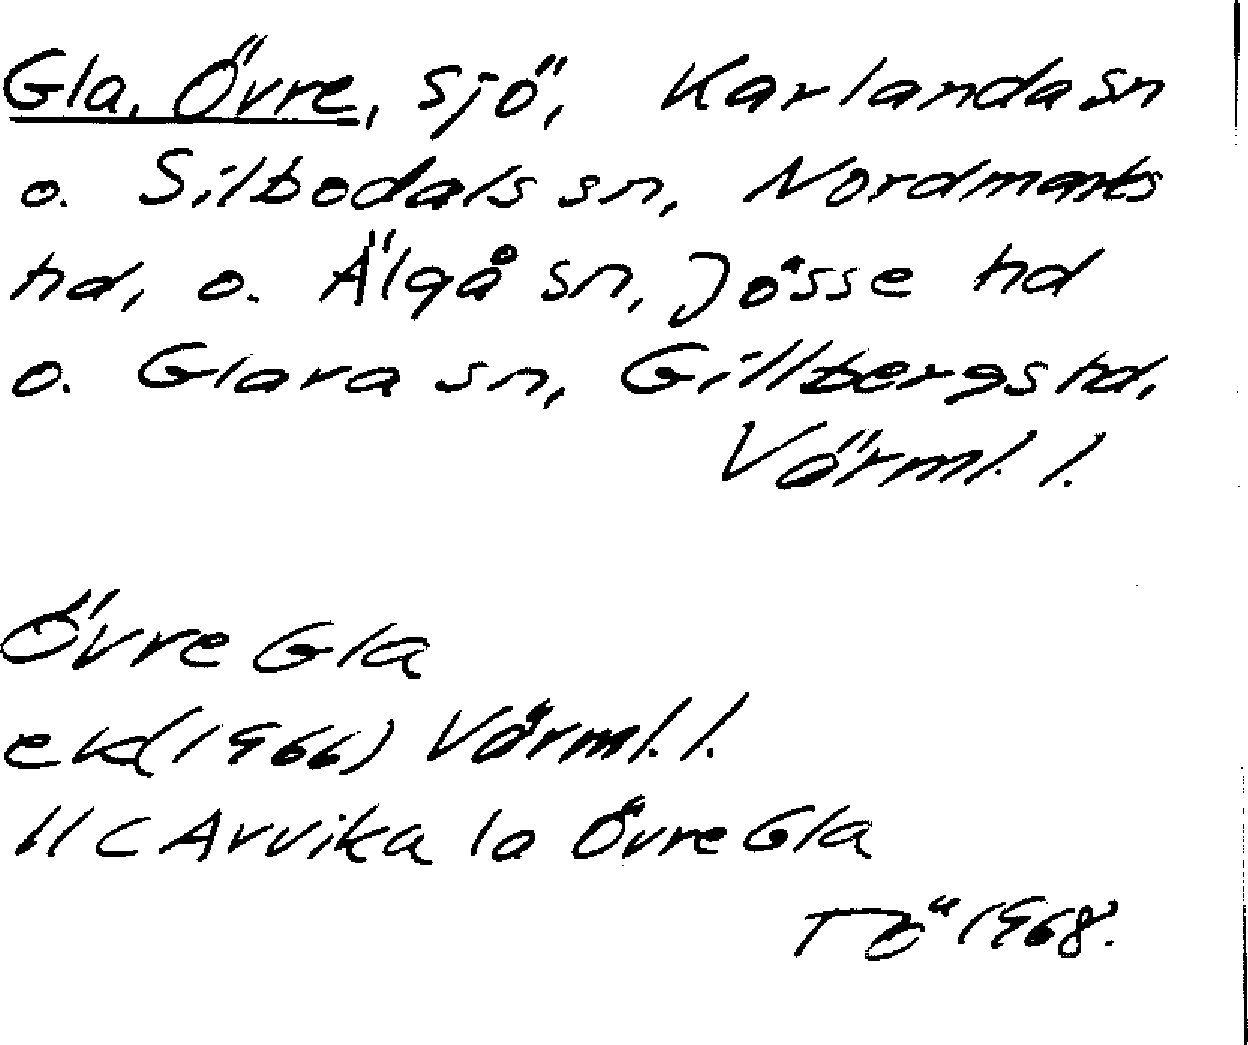 Gla, Övre, sjö, Karlanda sn
o. Silbodals sn, Nordmarks
hd, o. Älgå sn, Jösse hd
o. Glava sn, Gillbergs hd,
Värml. l.
Övre Gla
ek(1966) Värml. l.
11 C Arvika 1a Övre Gla
TÖ 1968.